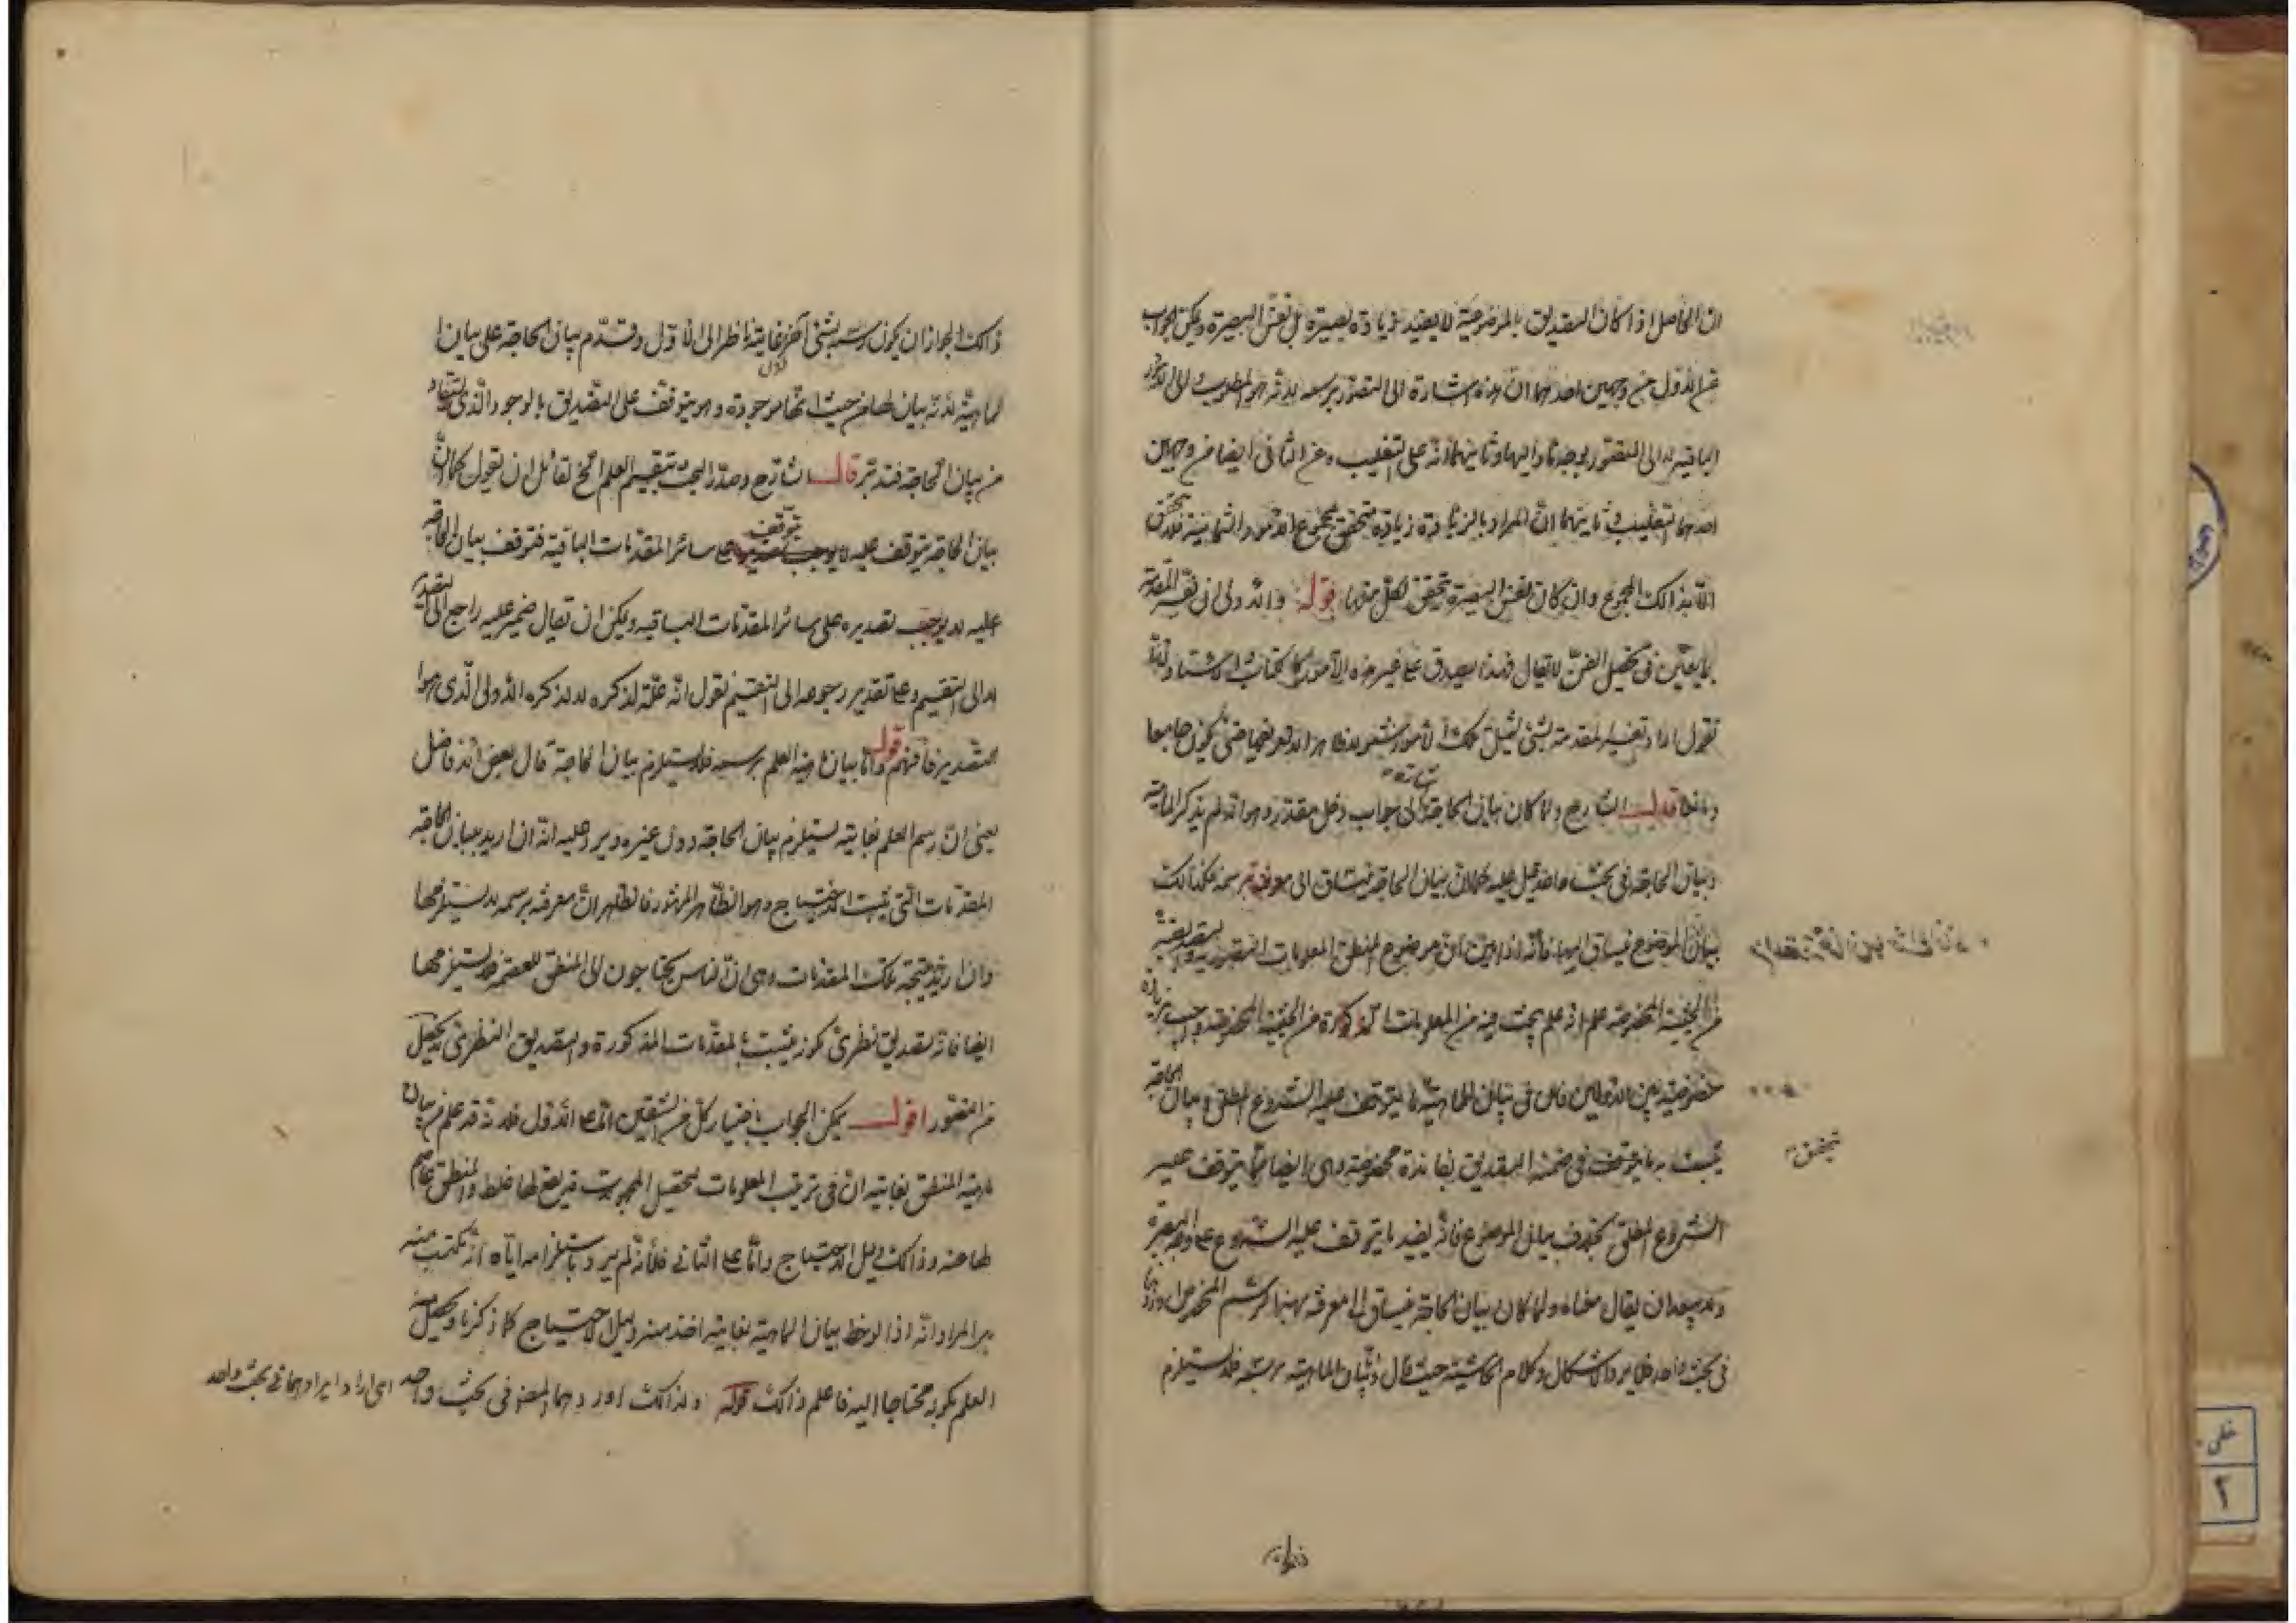 ان الحاصل اذا كان التصديق بالموضوعية لا يفيد زيادة بصيرة بل نفس البصيرة ويمكن الجواب
عن الاول من وجهين احدهما ان هذه اشارة الى التصور برسمه لانه هو المطلوب لا الى الامور
الباقية ولا الى التصور بوجه ما واليها وثانيهما انه على التغليب وعن الثاني ايضا من وجهين
احدهما التغليب وثانيهما ان المراد بالزيادة زيادة تتحقق بمجموع الامور الثمانية فلا تتحقق
الا بذلك المجموع وان كان نفس البصيرة تتحقق لكل منها قوله والاولى ان تفسر المقدمة
بما يعين في تحصيل الفن لا يقال فهذا يصدق على غير هذه الامور كالكتاب والاستاد لانا
نقول اراد تفسير المقدمة بشئ يشمل تلك الامور المشهورة لا تعريفها حتى يكون جامعا
ومانعا قال الشارح ولما كان بيان الحاجة الى جواب دخل مقدر وهو انه لم يذكر الماهية
وبيان الحاجة في بحث واحد قيل عليه كما ان بيان الحاجة ينساق الى معرفته برسمه فكذلك
بيان الموضوع ينساق اليها فانه اذا بين ان موضوع المنطق المعلومات التصورية والتصديقية
من الحيثية المخصوصة علم انه علم يبحث فيه عن المعلومات المذكورة من الحيثية المخصوصة واجيب بزيادة
خصوصية بين الاولين فان في بيان الماهية ما يتوقف عليه الشروع المطلق وبيان الحاجة
يثبت به ما يتوقف في ضمنه التصديق بفائدة مخصوصة وهي ايضا مما يتوقف عليه
الشروع المطلق بخلاف بيان الموضوع فانه يفيد ما يتوقف عليه الشروع على وجه البصيرة
ولا يبعد ان يقال معناه ولما كان بيان الحاجة ينساق الى معرفته بهذا الرسم المخصوص اوردهما
في بحث واحد فلا يرد الاشكال وكلام الحاشية حيث قال وبيان الماهية برسمه فلا يستلزم
ذلك لجواز ان يكون رسمه بشئ آخر غايته ناظر الى الاول وقدم بيان الحاجة على بيان
الماهية لانه بيان لها من حيث انها موجودة وهو يتوقف على التصديق بالوجود الذي يستفاد
من بيان الحاجة فتدبر قال الشارح وصدر البحث بتقسيم العلم الخ لقائل ان يقول كما ان
بيان الحاجة يتوقف عليه يتوقف على سائر المقدمات الباقية فتوقف بيان الحاجة
عليه لا يوجب تصديره على سائر المقدمات الباقية ويمكن ان يقال ضمير عليه راجع الى التصدير
لا الى التقسيم وعلى تقدير رجوعه الى التقسيم نقول انه علة لذكره لا لذكره الاولى الذي هو
التصدير فافهم قوله واما بيان ماهية العلم برسمه فلا يستلزم بيان الحاجة قال بعض الافاضل
يعني ان رسم العلم بغايته يستلزم بيان الحاجة دون غيره ويرد عليه انه ان اريد ببيان الحاجة
المقدمات التي يثبت الاحتياج وهو الظاهر المشهور فالظاهر ان معرفته برسمه لا يستلزمها
وان اريد نتيجة تلك المقدمات وهي ان الناس يحتاجون الى المنطق للعصمة فلا يستلزمها
ايضا فانه تصديق نظري يكون يثبت بالمقدمات المذكورة والتصديق النظري لا يحصل
من التصور اقول يمكن الجواب باختيار كل من الشقين اما على الاول فلانه قد علم من بيان
ماهية المنطق بغايته ان في ترتيب المعلومات لتحصيل المجهولات قد يقع لها غلط والمنطق عاصم
لها عنه وذلك دليل الاحتياج واما على الثاني فلانه لم يرد باستلزامه اياه انه يكتسب منه
بل المراد انه اذا لوحظ بيان الماهية بغايته اخذ منه دليل الاحتياج كما ذكرنا ويحصل منه
العلم بكونه محتاجا اليه فاعلم ذلك قوله ولذلك اوردهما المص في بحث واحد اي اراد ايرادهما في بحث واحد